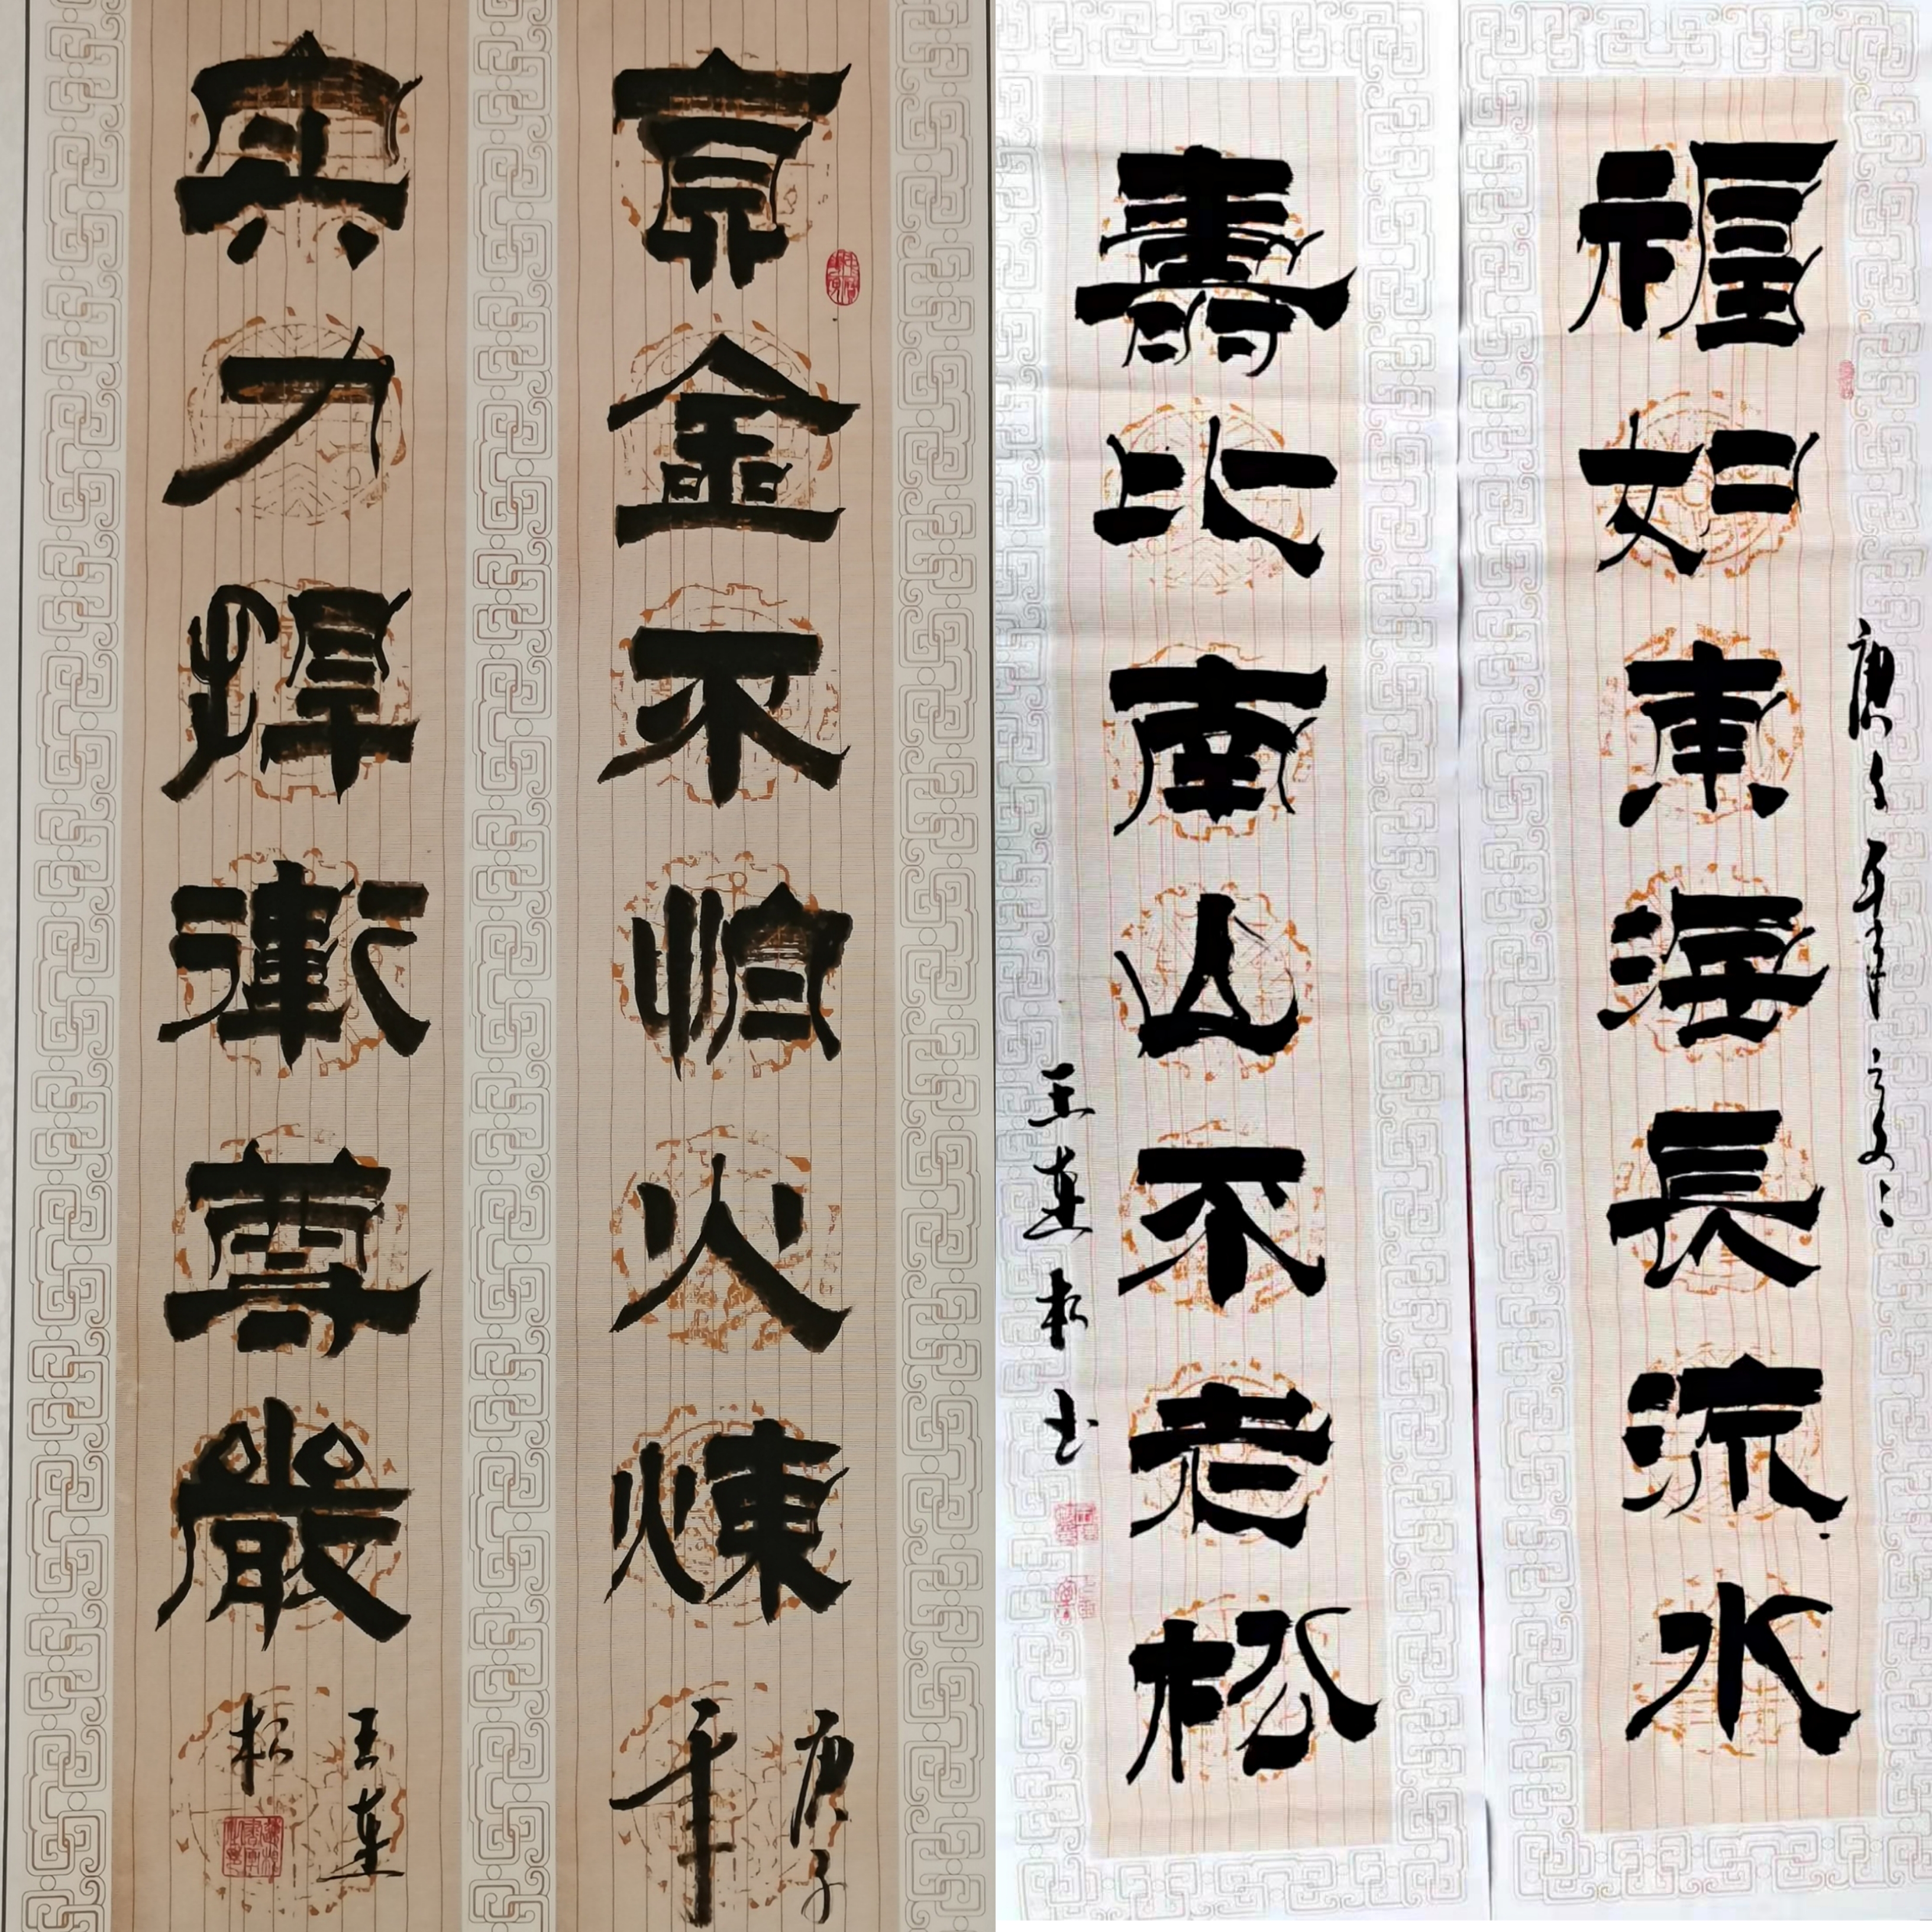 福如東海長流水
庚子年
壽比南山不老松
王连松书
真金不怕火煉
庚子
年
实力捍衛尊嚴
王连
松